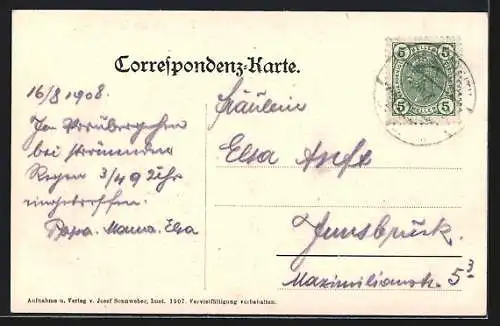 Correspondenz-Karte.
5 HELLER 5
5 HELLER 5
16/8 1908.
Im Vorübergehen
bei strömendem
Regen 3/4 9 Uhr
eingetroffen.
Papa. Mama. Elsa
Fräulein
Elsa
Innsbruck.
Maximilianstr. 5³
Aufnahme u. Verlag v. Josef Sonnweber, Imst. 1907. Vervielfältigung vorbehalten.